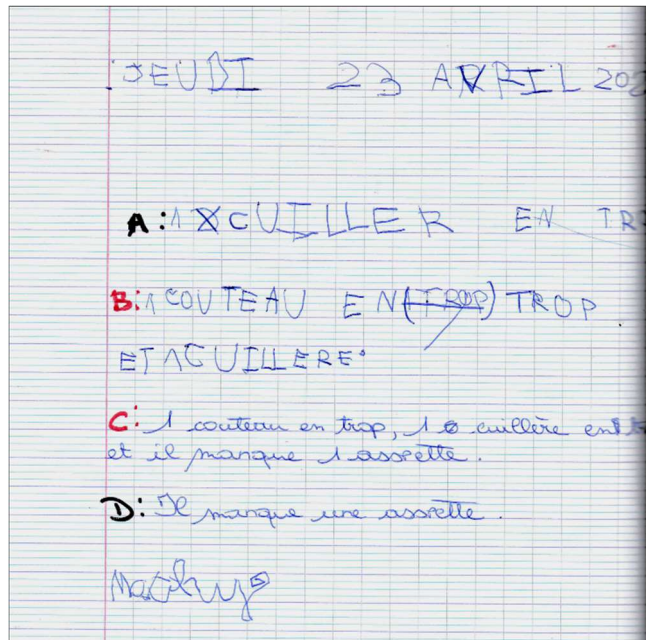 JEUDI 23 AVRIL 202
A: 1 CUILLER EN TR
B: 1 COUTEAU EN (TROP) TROP
ET 1 CUILLERE.
C: 1 couteau en trop, 1 cuillère en t
et il manque 1 assiette.
D: Il manque une assiette.